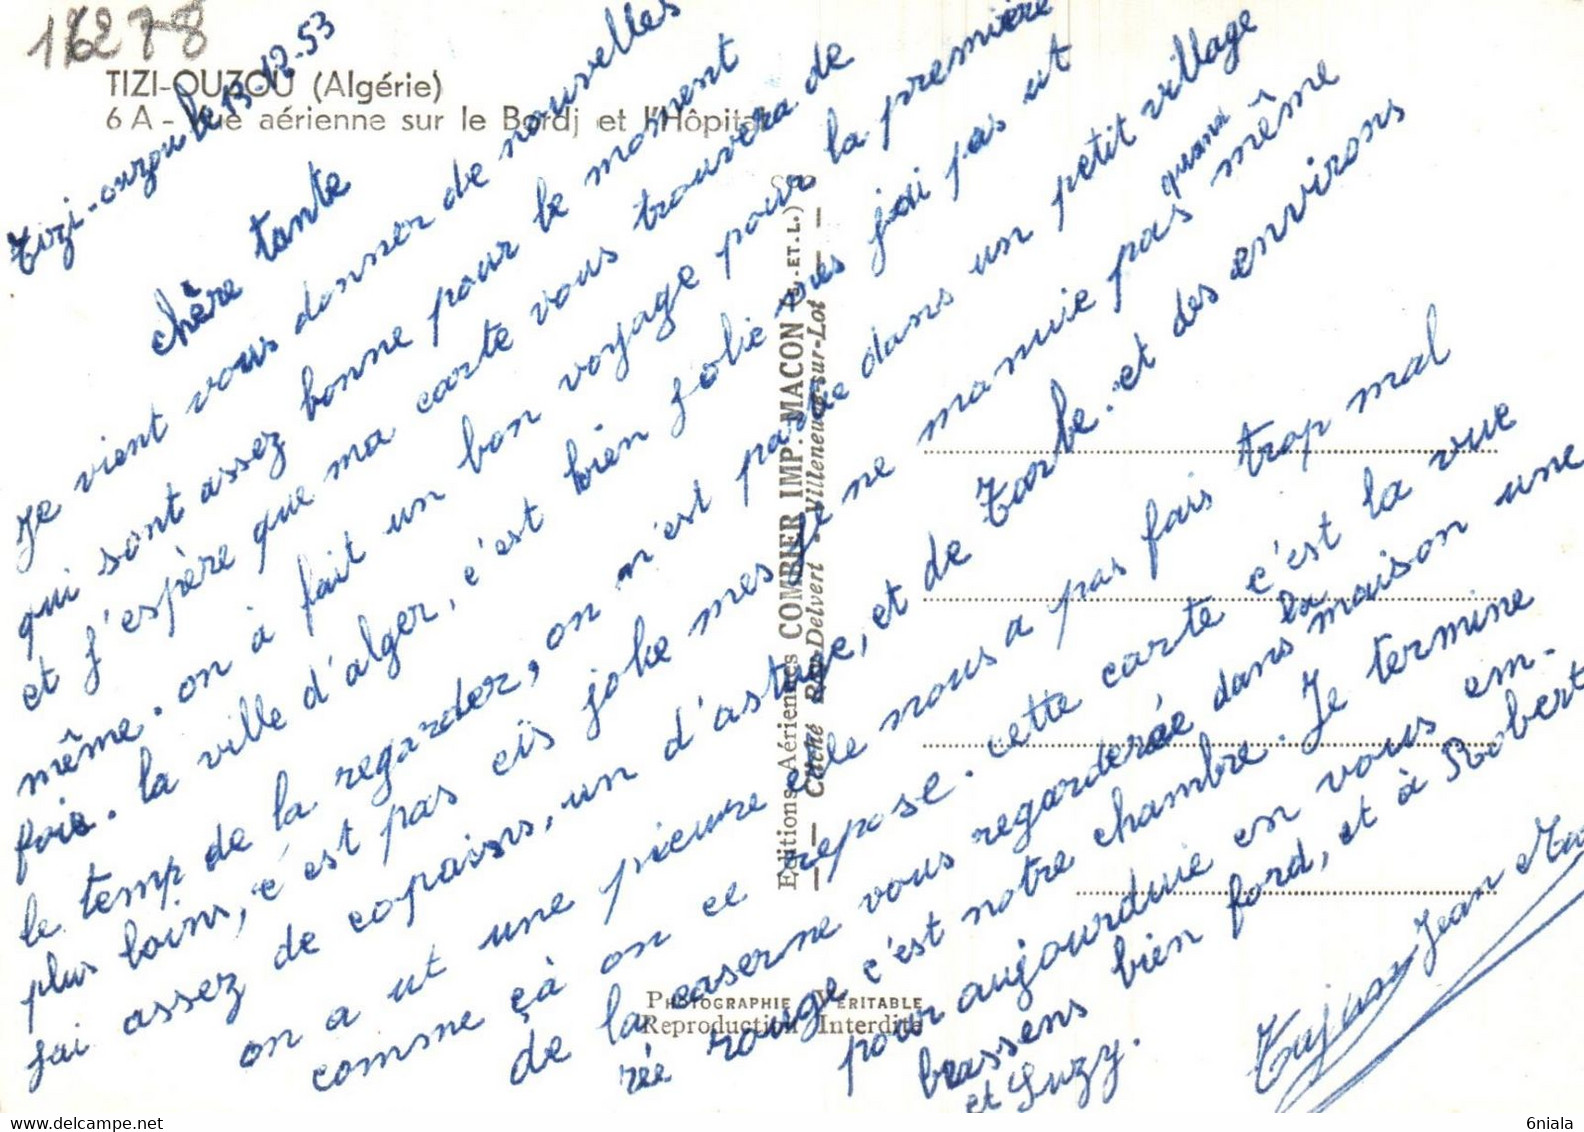 16278
TIZI-OUZOU (Algérie)
6 A - Vue aérienne sur le Bordj et l'Hôpital
Tizi-ouzou le 13.12.53
chère tante
Je vient vous donner de nouvelles
qui sont assez bonne pour le moment
et j'espère que ma carte vous trouvera de
même. on à fait un bon voyage pour la première
fois. la ville d'alger, c'est bien jolie mes j'ai pas ut
le temp de la regarder, on n'est dans un petit village
plus loins, c'est pas joke mes je ne manuie pas quand même
jai assez de copains, un d'astuge, et de Tarbe. et des environs
on a ut une picure elle nous a pas fais trop mal
comme çà on ce repose. cette carte c'est la vue
de la caserne vous regarderée dans la maison une
rée rouge c'est notre chambre. Je termine
pour aujourduie en vous em-
brassens bien ford, et à Robert
et Suzy.
Jean
Editions Aériennes COMBIER IMP. MACON (S.-ET-L.)
Cliché Ray-Delvert - Villeneuve-sur-Lot
PHOTOGRAPHIE VÉRITABLE
Reproduction Interdite
6niala